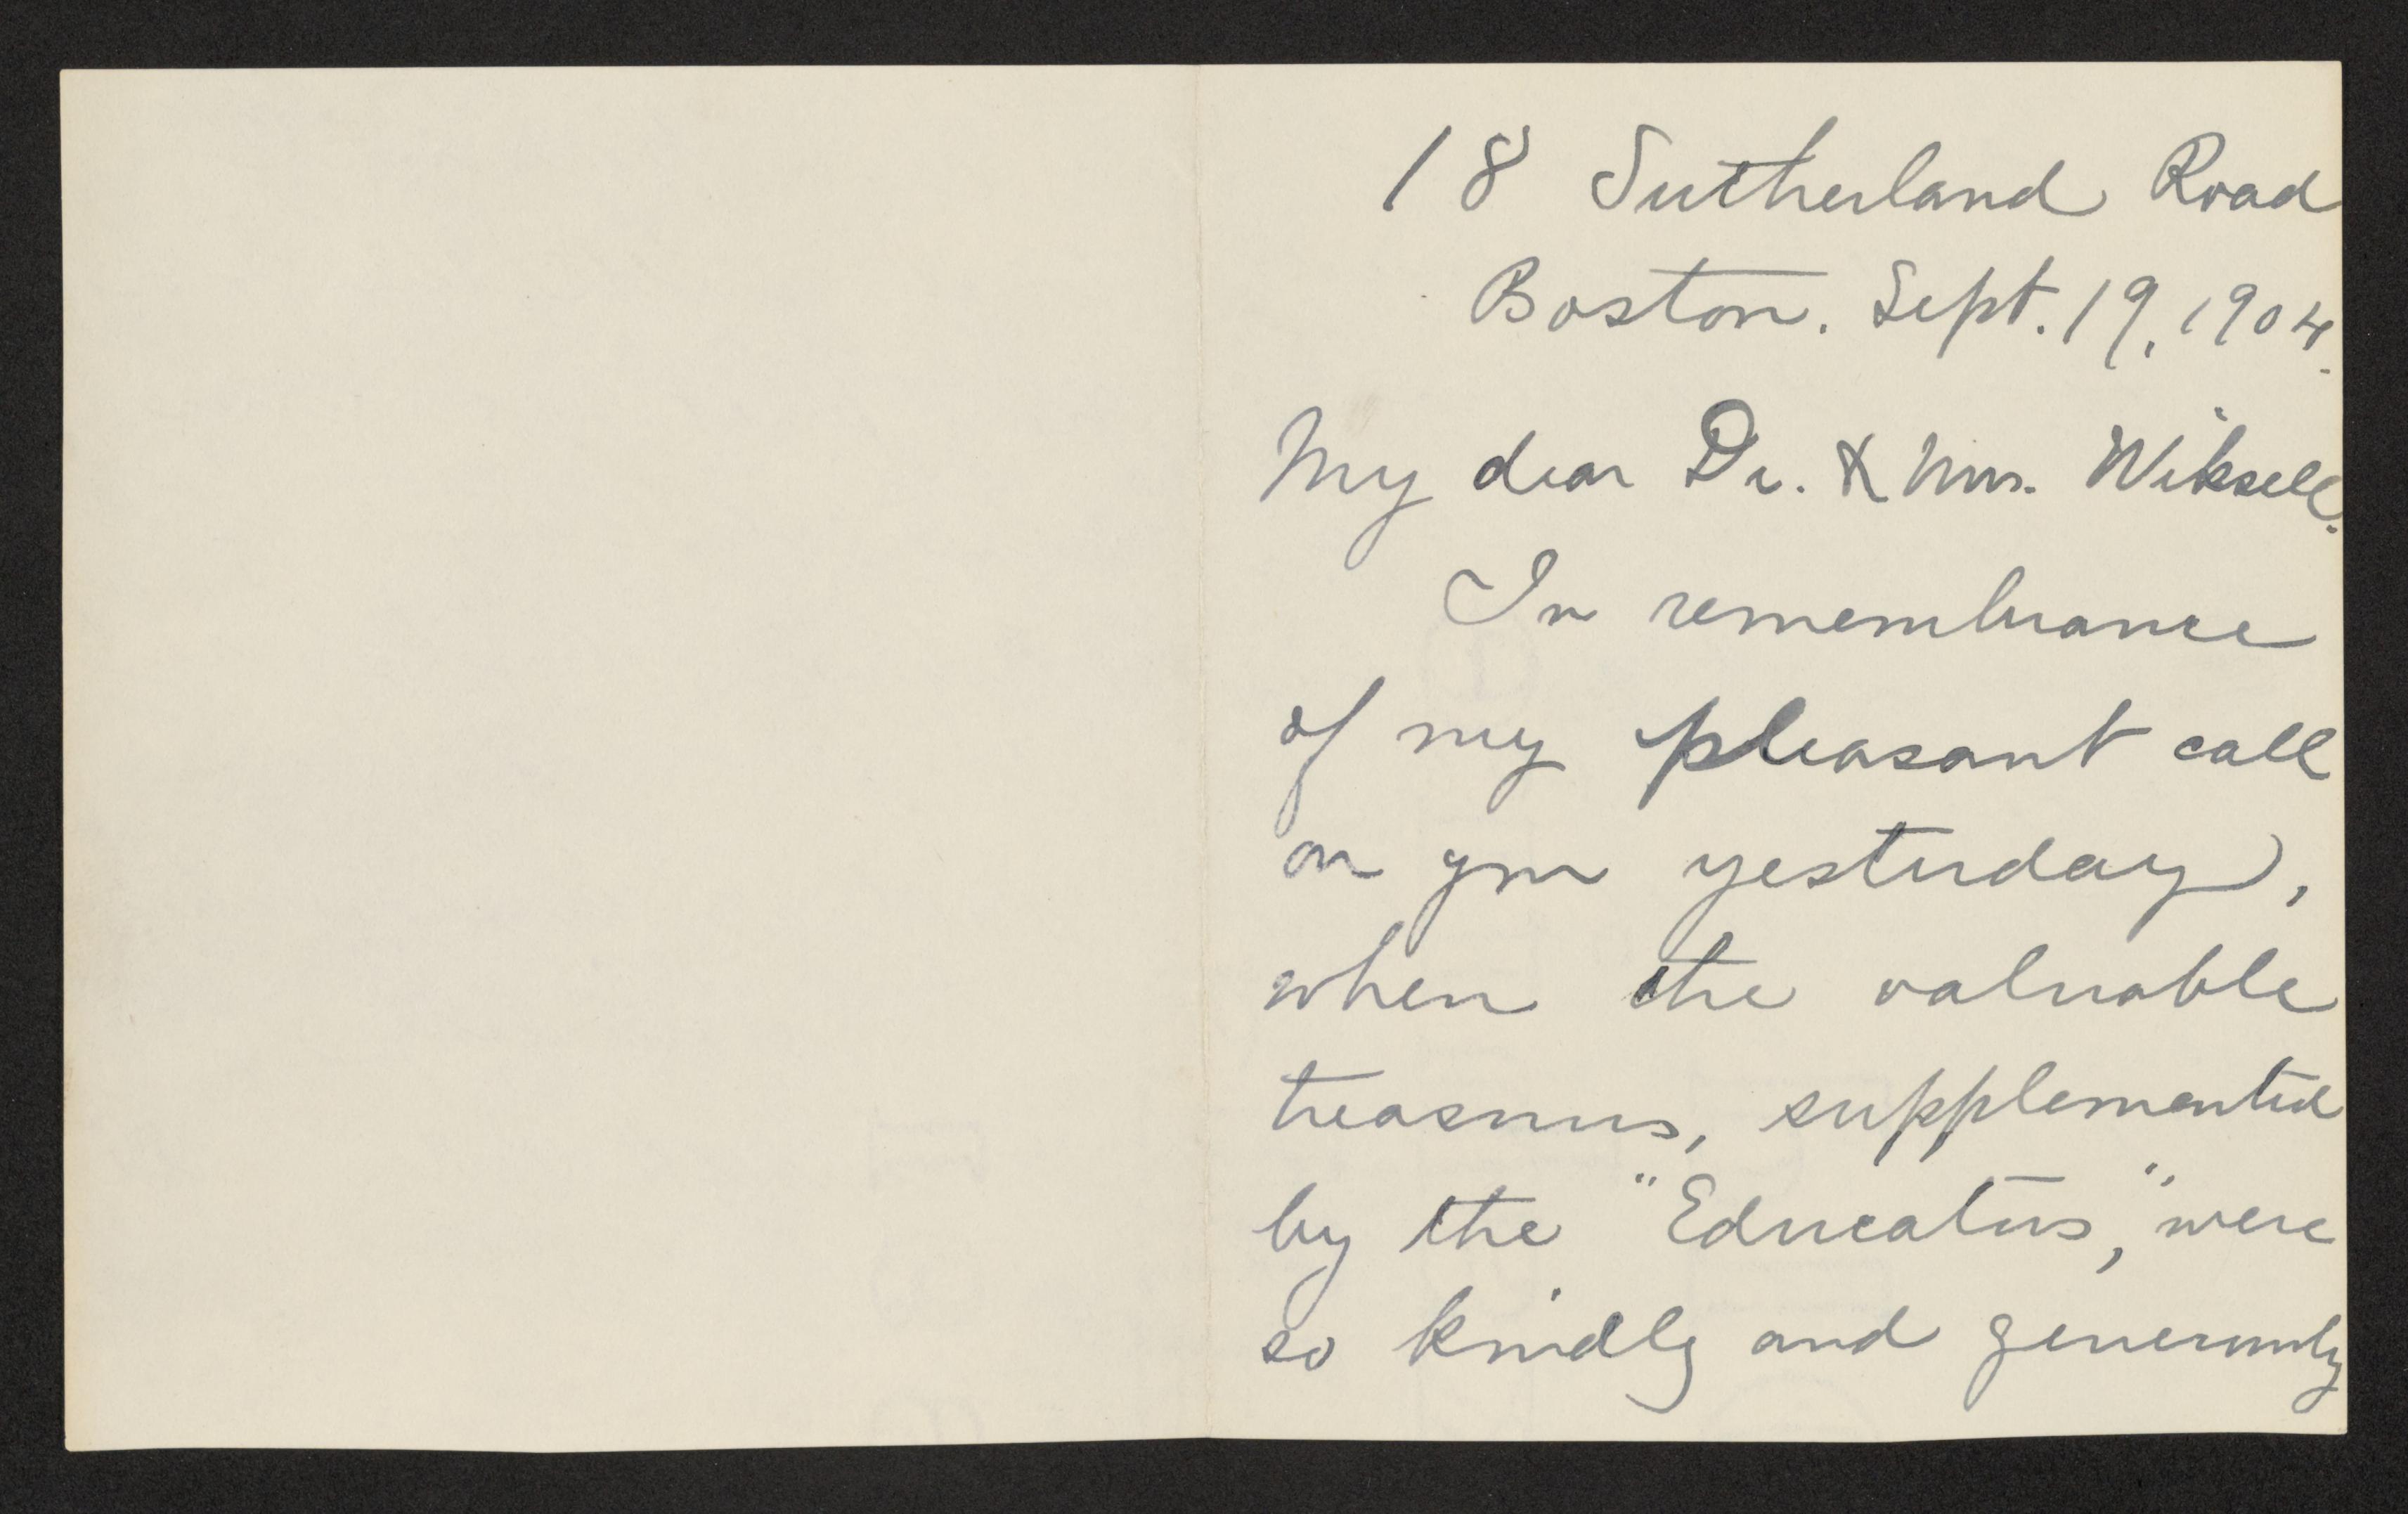 18 Sutherland Road
Boston. Sept. 19, 1904.
My dear Dr. & Mrs. Wiksell.
In remembrance
of my pleasant call
on you yesterday,
when the valuable
treasures, supplemented
by the "Educators," were
so kindly and generously